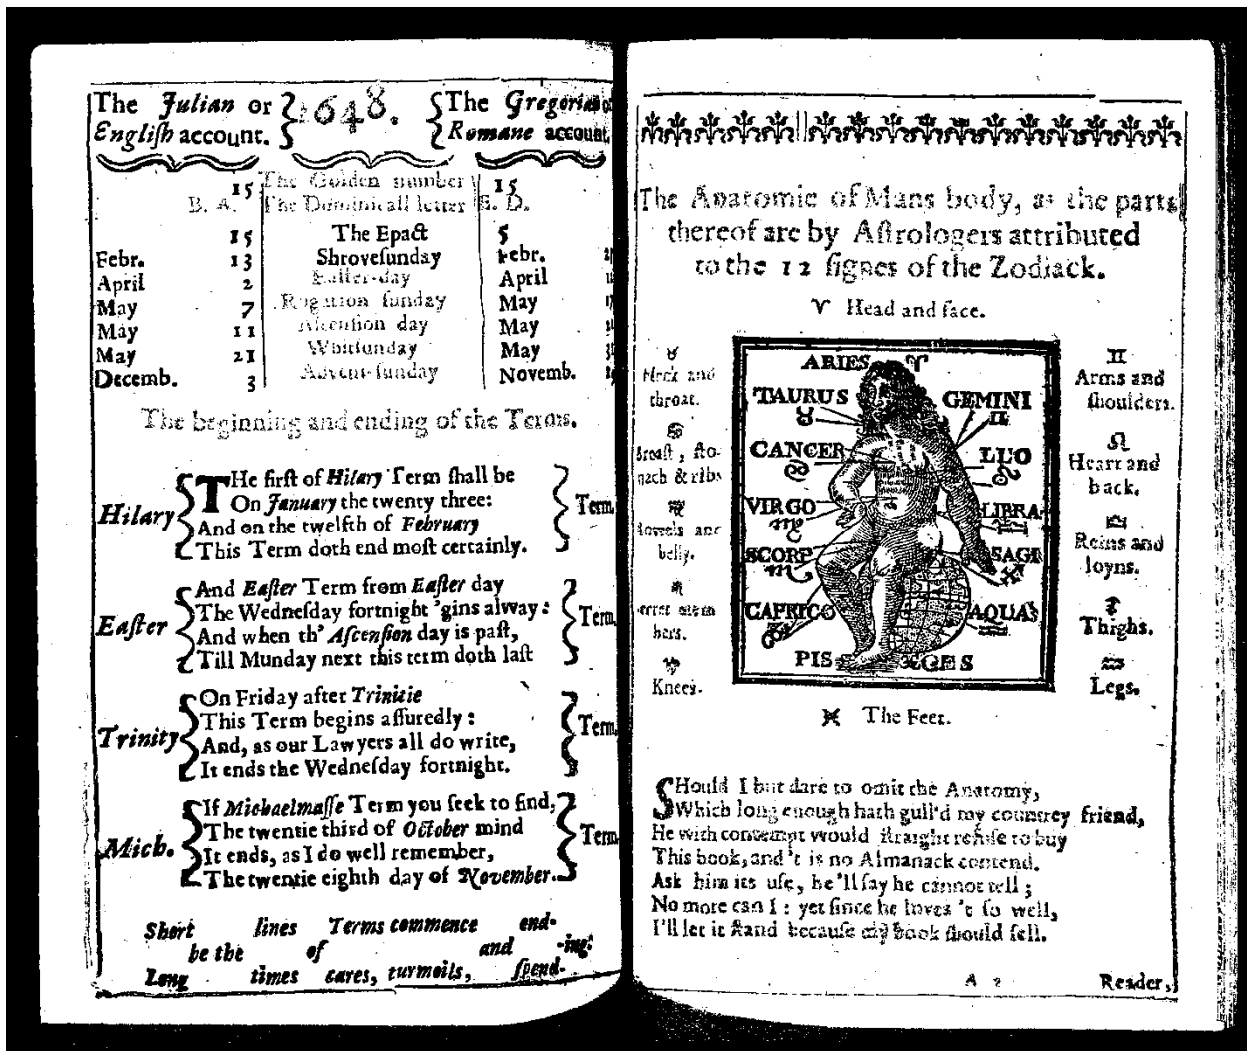 The Julian or
Engliſh account.
1648.
The Gregorian or
Romane account.
15 The Golden number 15
B. A. The Dominicall letter E. D.
15 The Epact 5
Febr. 13 Shroveſunday Febr.
April 2 Eaſter-day April
May 7 Rogation ſunday May
May 11 Aſcenſion day May
May 21 Whitſunday May
Decemb. 3 Advent-ſunday Novemb.
The beginning and ending of the Terms.
Hilary
THe firſt of Hilary Term ſhall be
On January the twenty three:
And on the twelfth of February
This Term doth end moſt certainly.
Term.
Eaſter
And Eaſter Term from Eaſter day
The Wedneſday fortnight 'gins alway:
And when th' Aſcenſion day is paſt,
Till Munday next this term doth laſt
Term.
Trinity
On Friday after Trinitie
This Term begins aſſuredly:
And, as our Lawyers all do write,
It ends the Wedneſday fortnight.
Term.
Mich.
If Michaelmaſſe Term you ſeek to find,
The twentie third of October mind
It ends, as I do well remember,
The twentie eighth day of November.
Term.
Short lines Terms commence end-
be the of and -ing:
Long times cares, turmoils, ſpend-
The Anatomie of Mans body, as the parts
thereof are by Aſtrologers attributed
to the 12 ſignes of the Zodiack.
♈ Head and face.
♉
Neck and
throat.
♋
Breaſt, ſto-
mach & ribs
♍
Bowels and
belly.
♏
Secret mem
bers.
♑
Knees.
ARIES ♈
TAURUS ♉
GEMINI ♊
CANCER ♋
LUO ♌
VIRGO ♍
LIBRA ♎
SCORP ♏
SAGI ♐
CAPRICO ♑
AQUAS ♒
PIS CES
♊
Arms and
ſhoulders.
♌
Heart and
back.
♎
Reins and
loyns.
♐
Thighs.
♒
Legs.
♓ The Feet.
SHould I but dare to omit the Anatomy,
Which long enough hath gull'd my countrey friend,
He with contempt would ſtraight refuſe to buy
This book, and 't is no Almanack contend.
Ask him its uſe, he'll ſay he cannot tell;
No more can I: yet ſince he loves 't ſo well,
I'll let it ſtand becauſe my book ſhould ſell.
A 2 Reader,